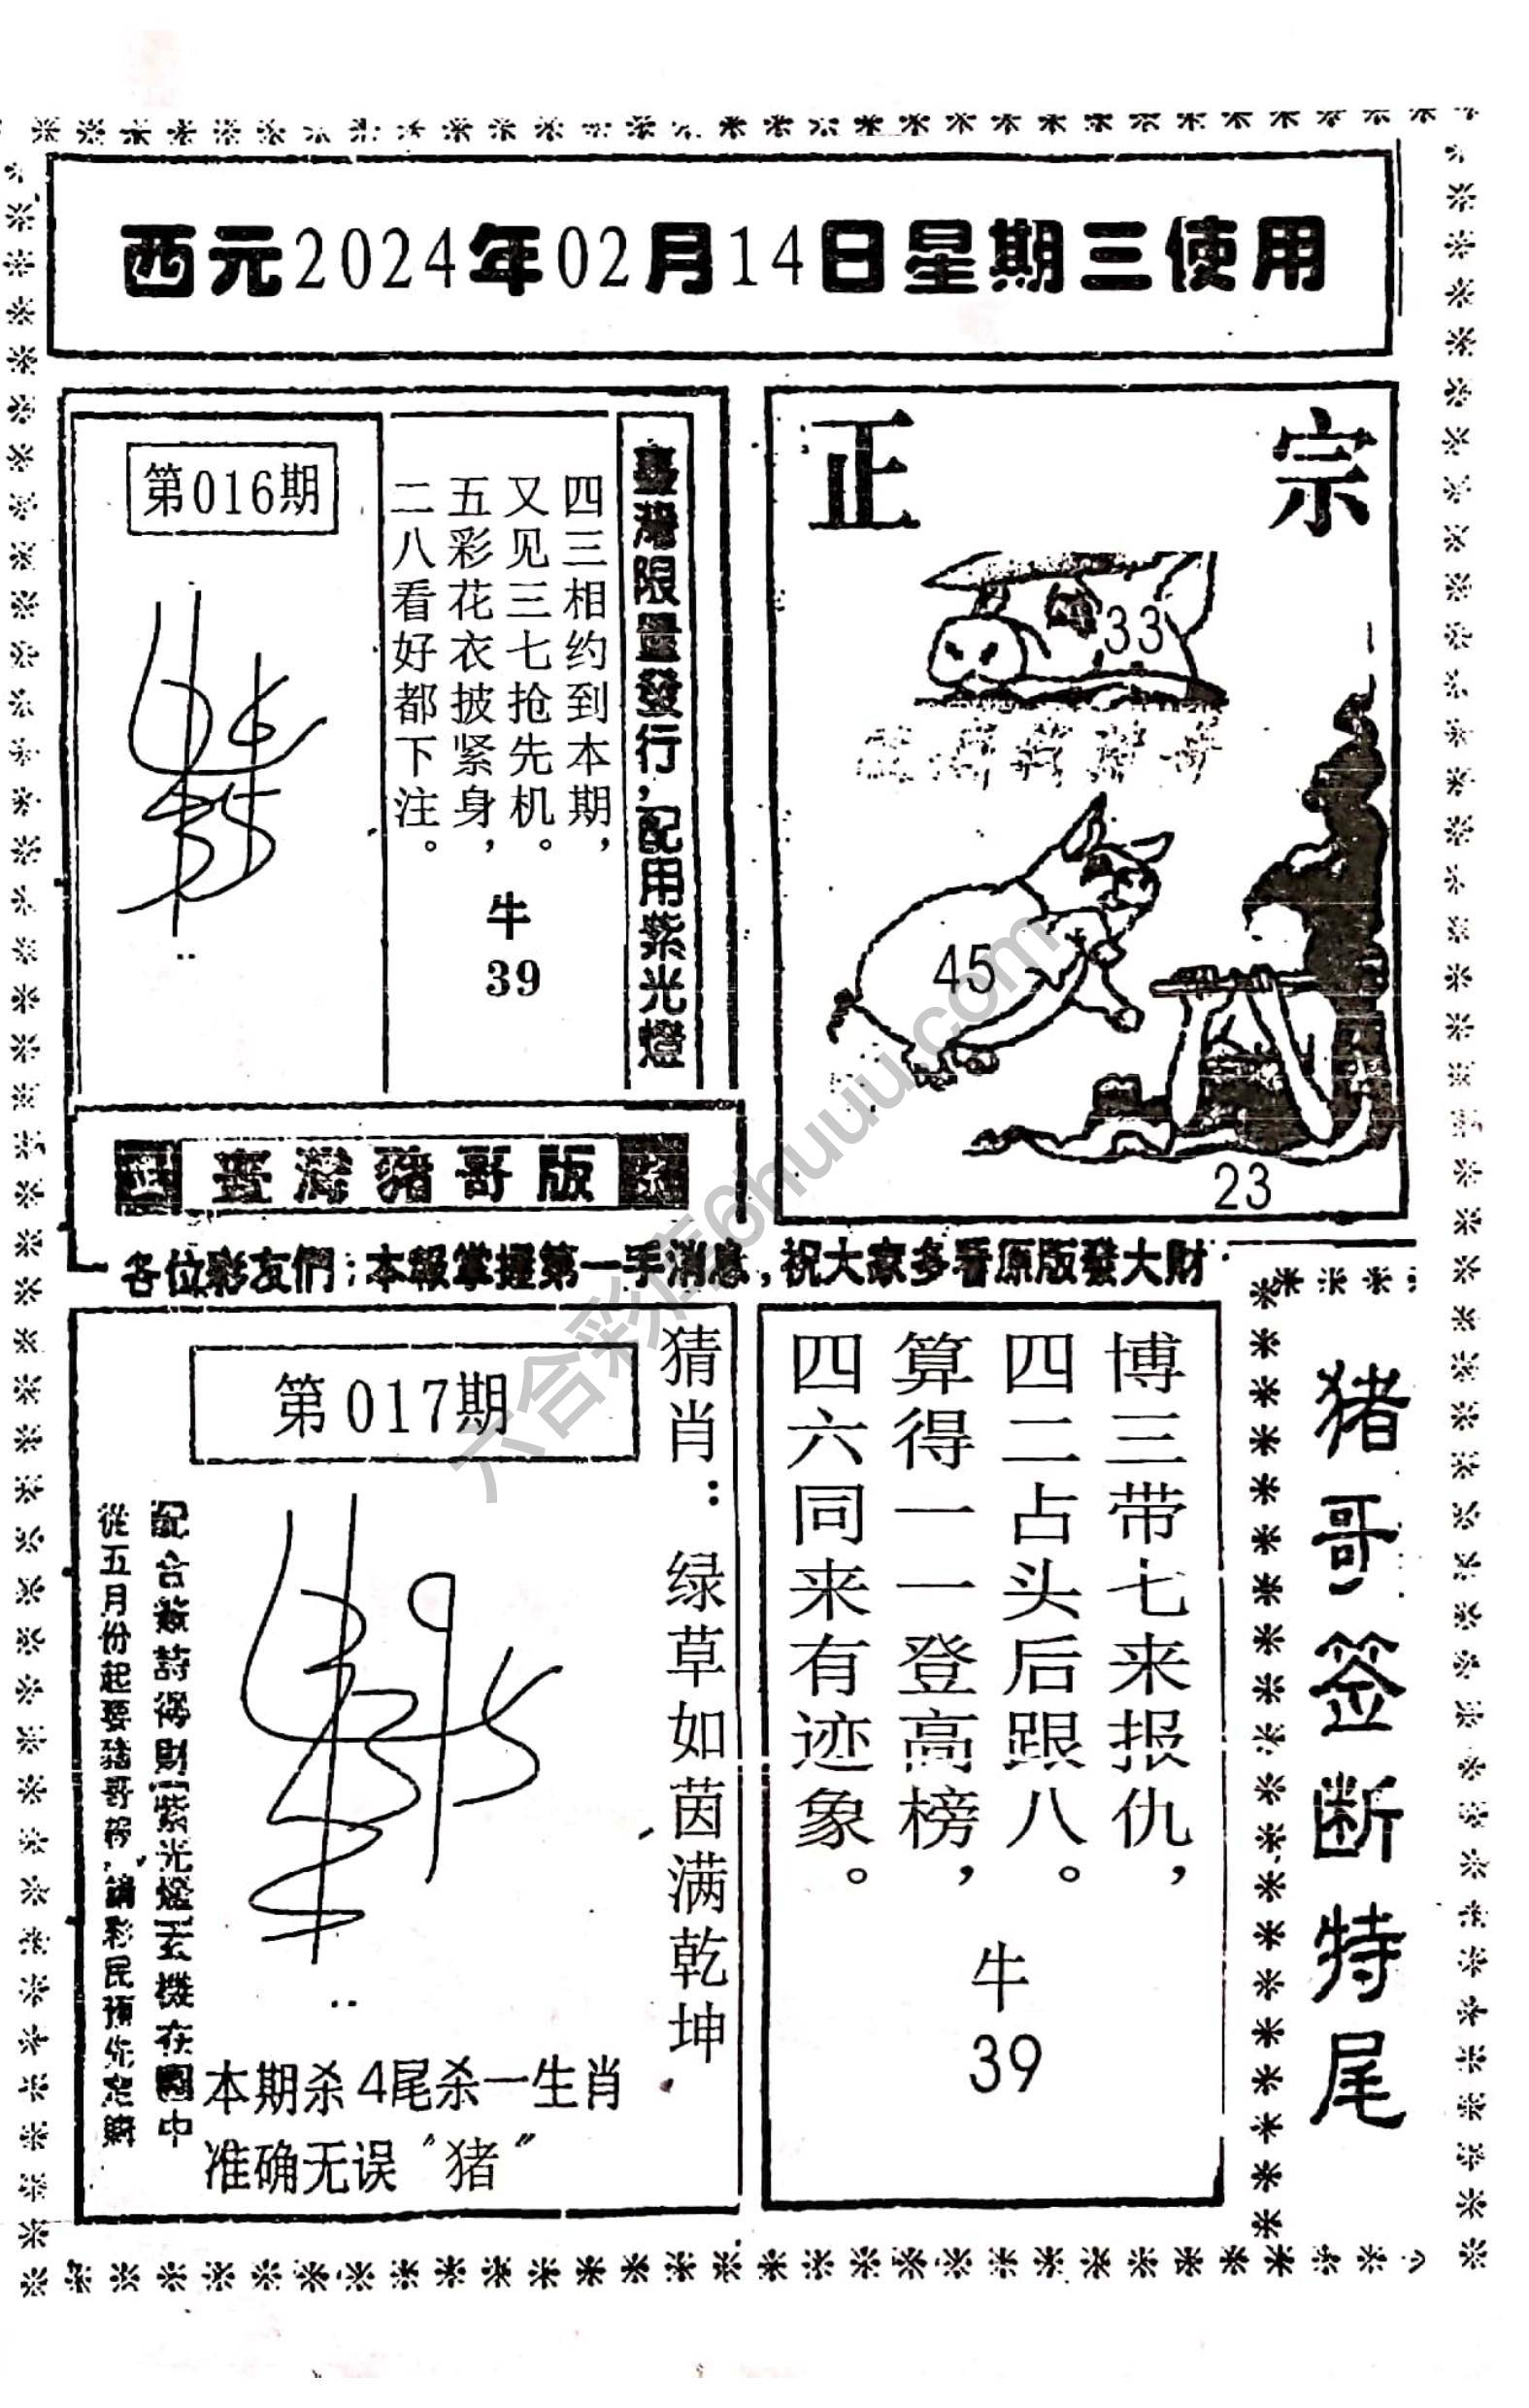 西元2024年02月14日星期三使用
第016期
臺灣限量發行,配用紫光燈
四三相约到本期,
又见三七抢先机。
五彩花衣披紧身,
二八看好都下注。
牛
39
正 宗
33
45
23
臺灣豬哥版
各位彩友們:本報掌握第一手消息,祝大家多看原版發大財
第017期
猜肖:绿草如茵满乾坤
配合簽詩得財(紫光燈)玄機在圖中
從五月份起要豬哥報,請彩民預先定購
本期杀4尾杀一生肖
准确无误“猪”
博三带七来报仇,
四二占头后跟八。
算得一一登高榜,
四六同来有迹象。
牛
39
猪哥签断特尾
六合彩库6huuu.com